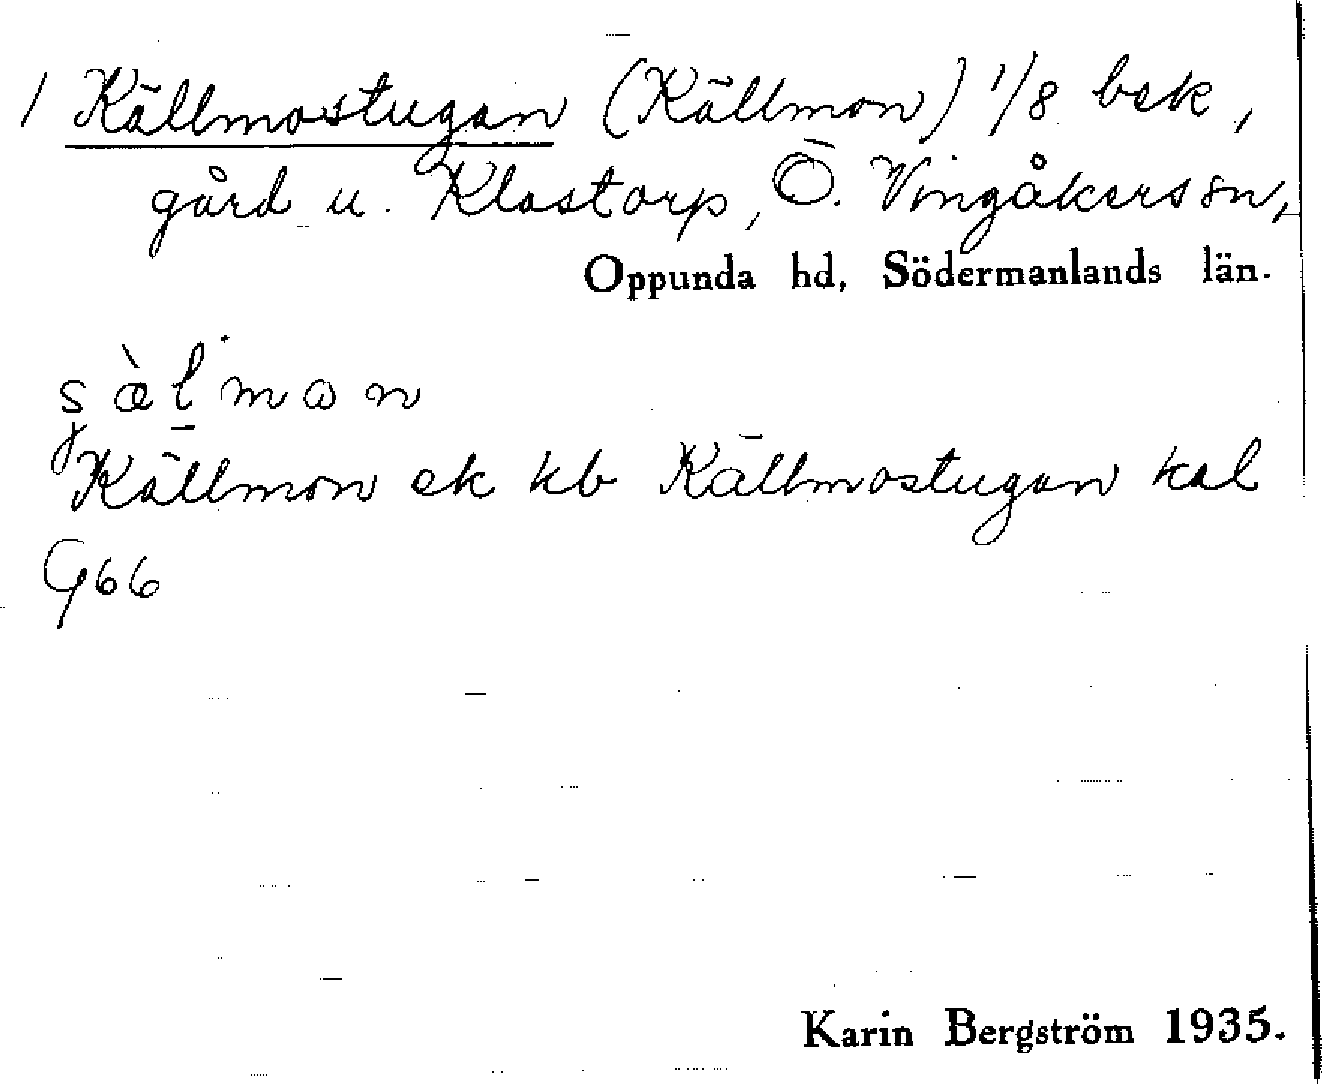 1 Källmostugan (Källmon) 1/8 bek,
gård u. Klastorp, Ö. Vingåkers sn,
Oppunda hd, Södermanlands län.
Källmon ek kb Källmostugan kal
G66
Karin Bergström 1935.